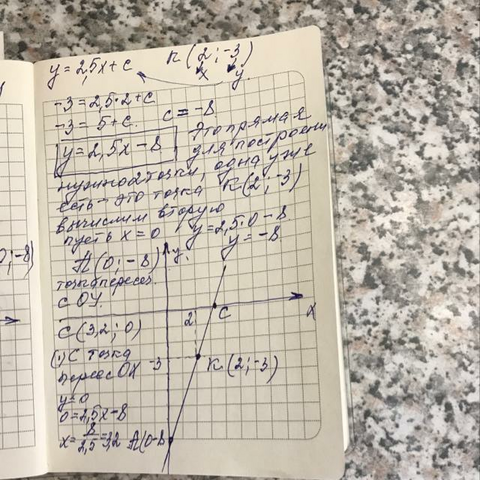 y = 2,5x + c
К (2; -3)
x y
-3 = 2,5·2 + c
-3 = 5 + c. c = -8
y = 2,5x - 8
Это прямая
для построени
нужно 2 точки, одна уже
есть - это точка К(2; -3)
вычислим вторую
пусть x = 0 y = 2,5·0 - 8
y = -8
А (0; -8)
точка перес.
с ОУ.
С (3,2; 0)
(·) С точка
перес ОХ
y = 0
0 = 2,5x - 8
x = 8/2,5 = 3,2
y
x
2
С
-3
К (2; -3)
А(0 -8
0; -8)